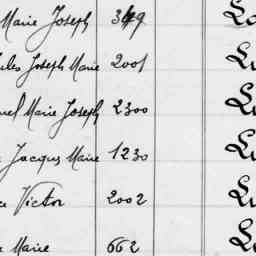 Marie Joseph 349 Lo
Jules Joseph Marie 2001 Lu
Marie Joseph 2300 Lu
Jacques Marie 1230 Lu
Victor 2002 Lu
Marie 662 Lu